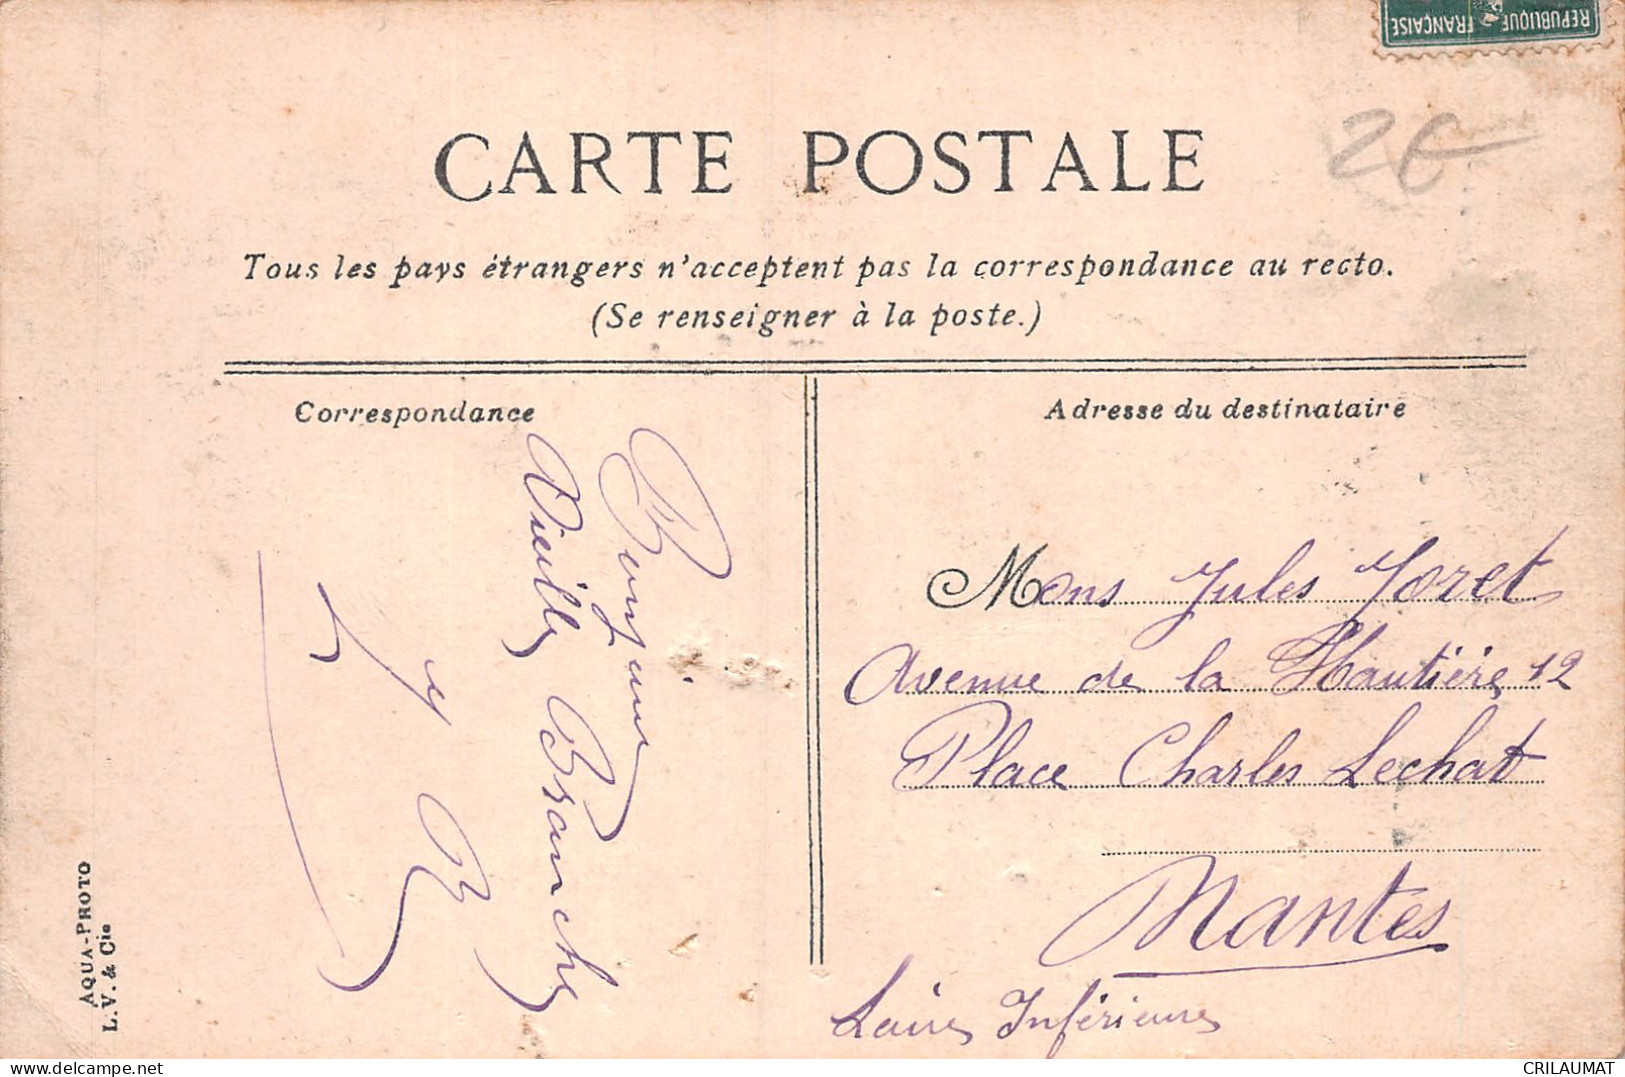 REPUBLIQUE FRANÇAISE
2€
CARTE POSTALE
Tous les pays étrangers n'acceptent pas la correspondance au recto.
(Se renseigner à la poste.)
Correspondance
Adresse du destinataire
Bonjour
Vieille Branche
Mons Jules Joret
Avenue de la Hautière 12
Place Charles Lechat
Nantes
Loire Inférieure
AQUA-PHOTO
L. V. & Cie
delcampe.net
CRILAUMAT